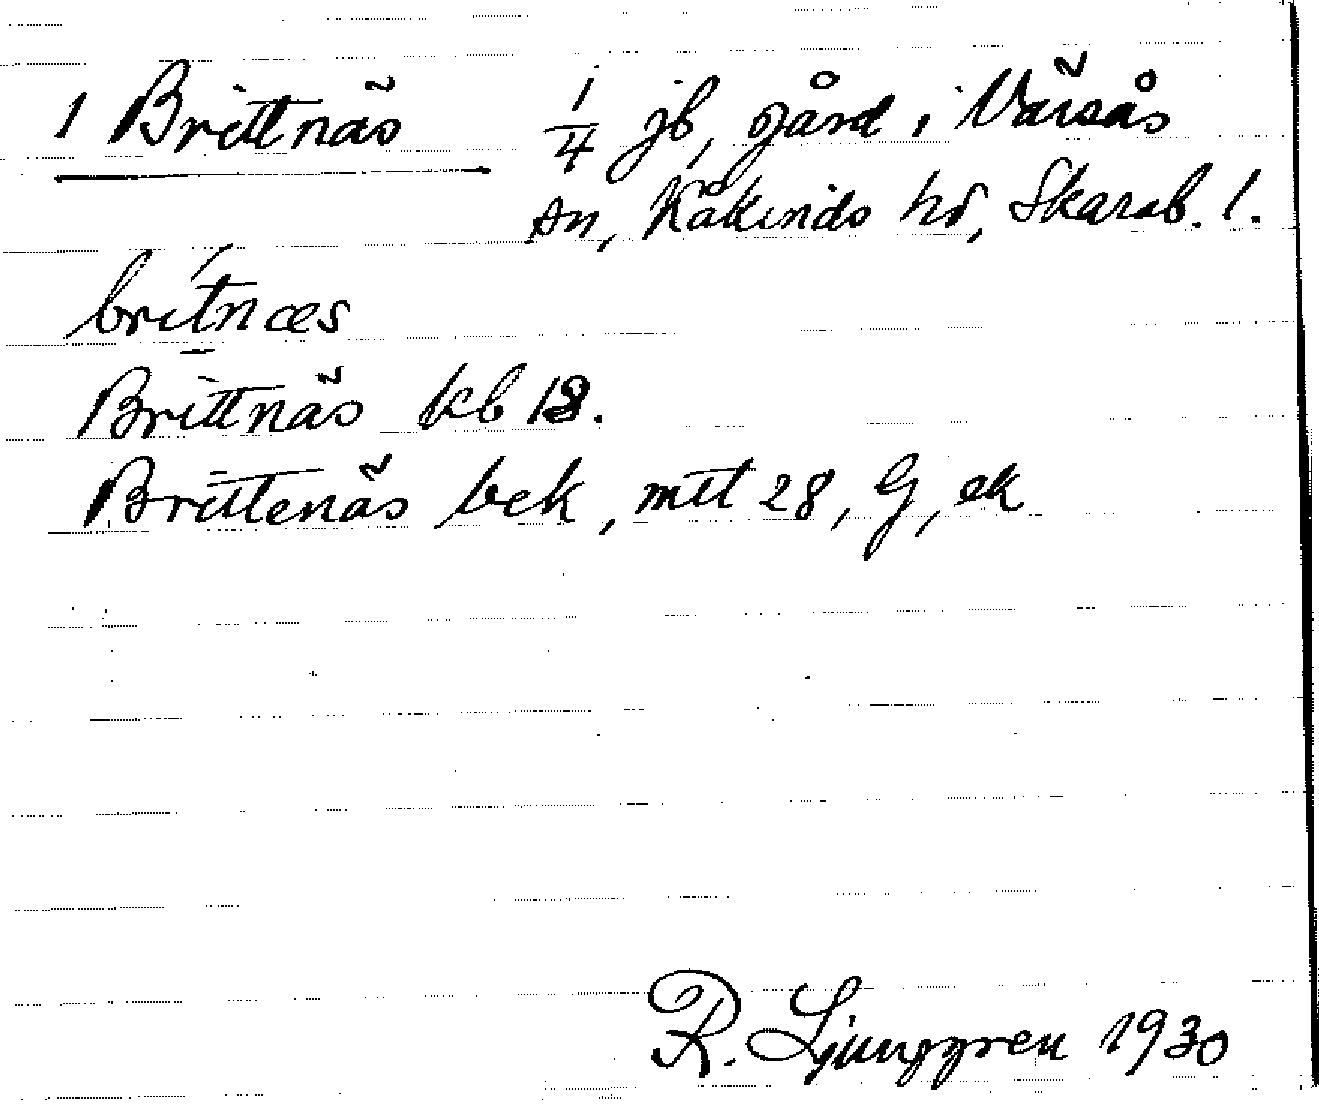 1 Brittnäs 1/4 jb, gård i Värsås
sn, Kåkinds hd, Skarab. l.
britnæs
Brittnäs kb 18.
Brittenäs bek, mtl 28, G, ek
R. Ljunggren 1930